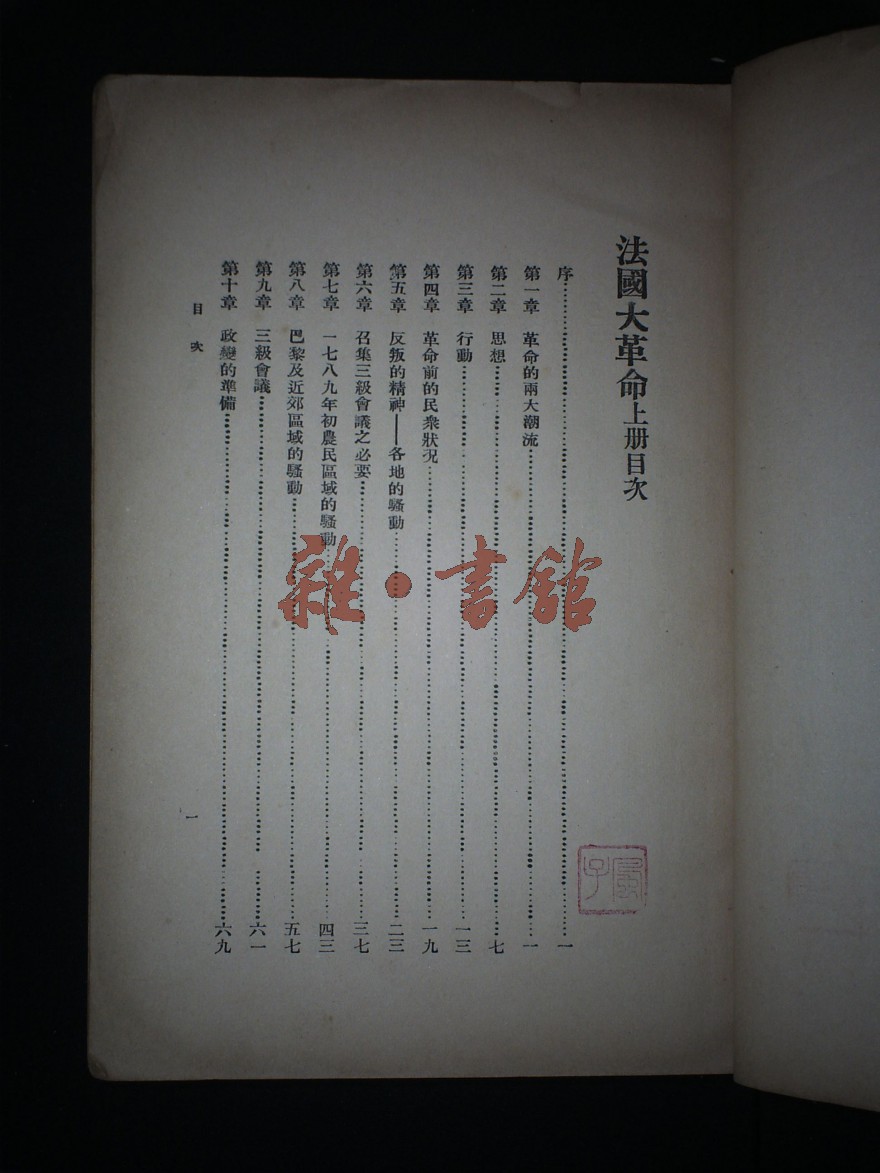 法國大革命上册目次
序……一
第一章 革命的兩大潮流……一
第二章 思想……七
第三章 行動……一三
第四章 革命前的民衆狀况……一九
第五章 反叛的精神——各地的騷動……二三
第六章 召集三級會議之必要……三七
第七章 一七八九年初農民區域的騷動……四三
第八章 巴黎及近郊區域的騷動……五七
第九章 三級會議……六一
第十章 政變的準備……六九
目次
一
雜·書館